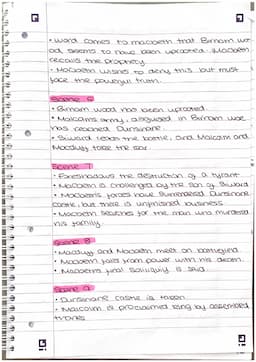 • Word comes to macbeth that Birnam wo
od, seems to have been uprooted. Macbeth
recalls the prophecy.
• Macbeth wishes to deny this, but must
face the powerful truth.
Scene 6
• Birnam wood has been uprooted.
• Malcolms army, disguised in Birnam woe
has reached Dunsinane.
• Siward leads the battle, and Malcolm and
Macduff take the
Scene 7
• Foreshadows the destruction of a tyrant
• Macbeth is challenged by the son of Siward
• Macbeth's forces have surrendered Dunsinane
castle, but there is unfinished business
• Macduff searches for the man who murdered
his family.
Scene 8
• Macduff and Macbeth meet on battlefield
• Macbeth falls from power with his death.
• Macbeth's final soliloquy is said.
Scene 9
• Dunsinane castle is taken
• Malcolm is proclaimed king by assembled
thanes